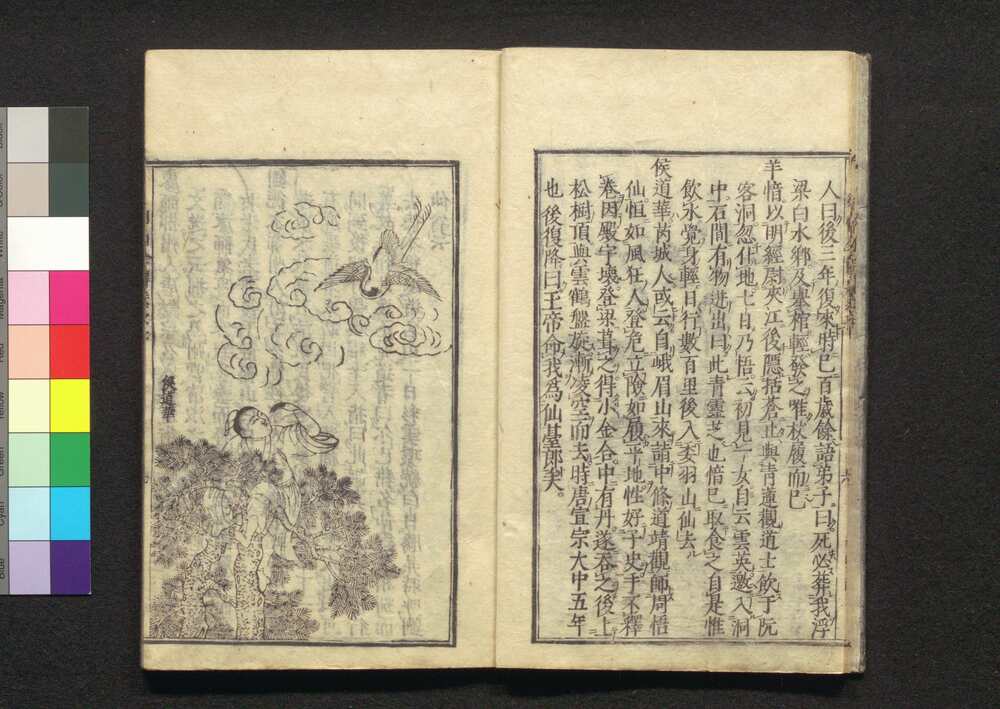 人曰後三年復來時已百歲餘語弟子曰死必葬我浮
梁白水鄉及擧棺輕發之唯杖履而已
羊愔以明經尉夾江後隱括蒼止與青蓮觀道士飲于阮
客洞忽仆地七日乃悟云初見一女自云雲英邀入洞
中石間有物迸出曰此青靈芝也愔已取食之自是惟
飲水覺身輕日行數百里後入委羽山仙去
侯道華芮城人或云自峨眉山來謁中條道靖觀師周悟
仙恒如風狂人登危立險如履平地性好子史手不釋
卷因殿宇壞登梁葺之得小金合中有丹遂吞之後上
松樹頂與雲鶴盤旋漸凌空而去時唐宣宗大中五年
也後復降曰玉帝命我爲仙臺郎矣
侯道華